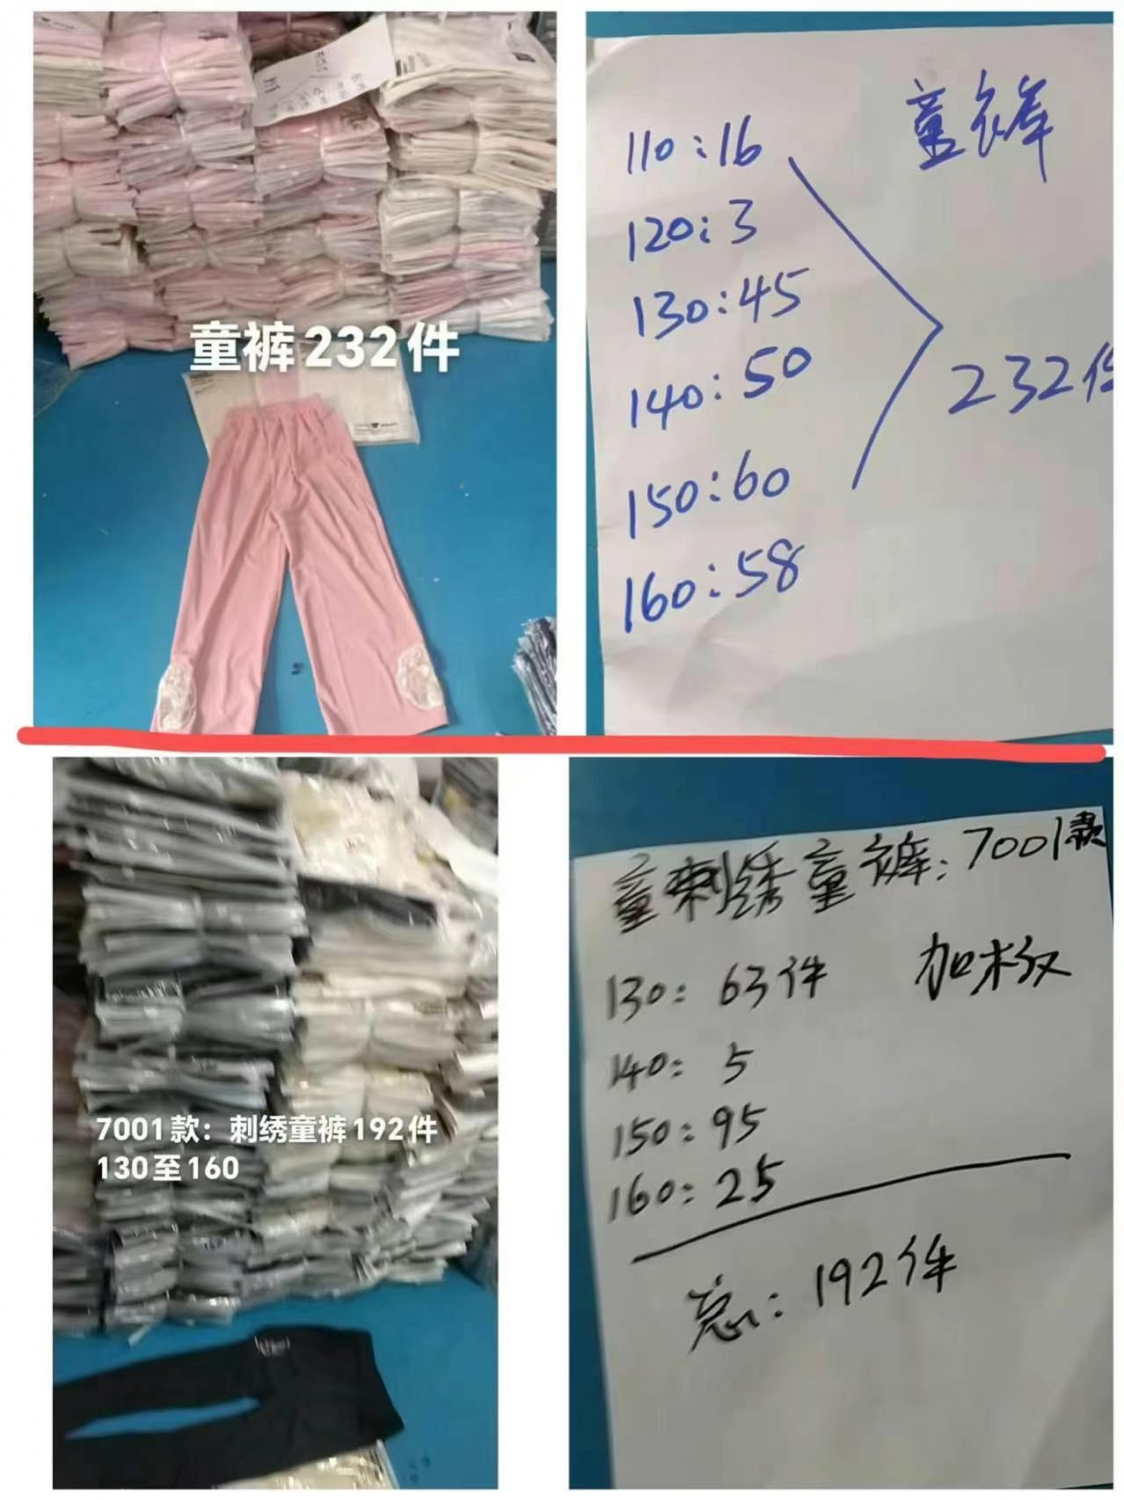 童裤232件
童裤
110:16
120:3
130:45
140:50
150:60
160:58
232件
7001款：刺绣童裤192件
130至160
童刺绣童裤:7001款
加木权
130: 63件
140: 5
150: 95
160: 25
总: 192件